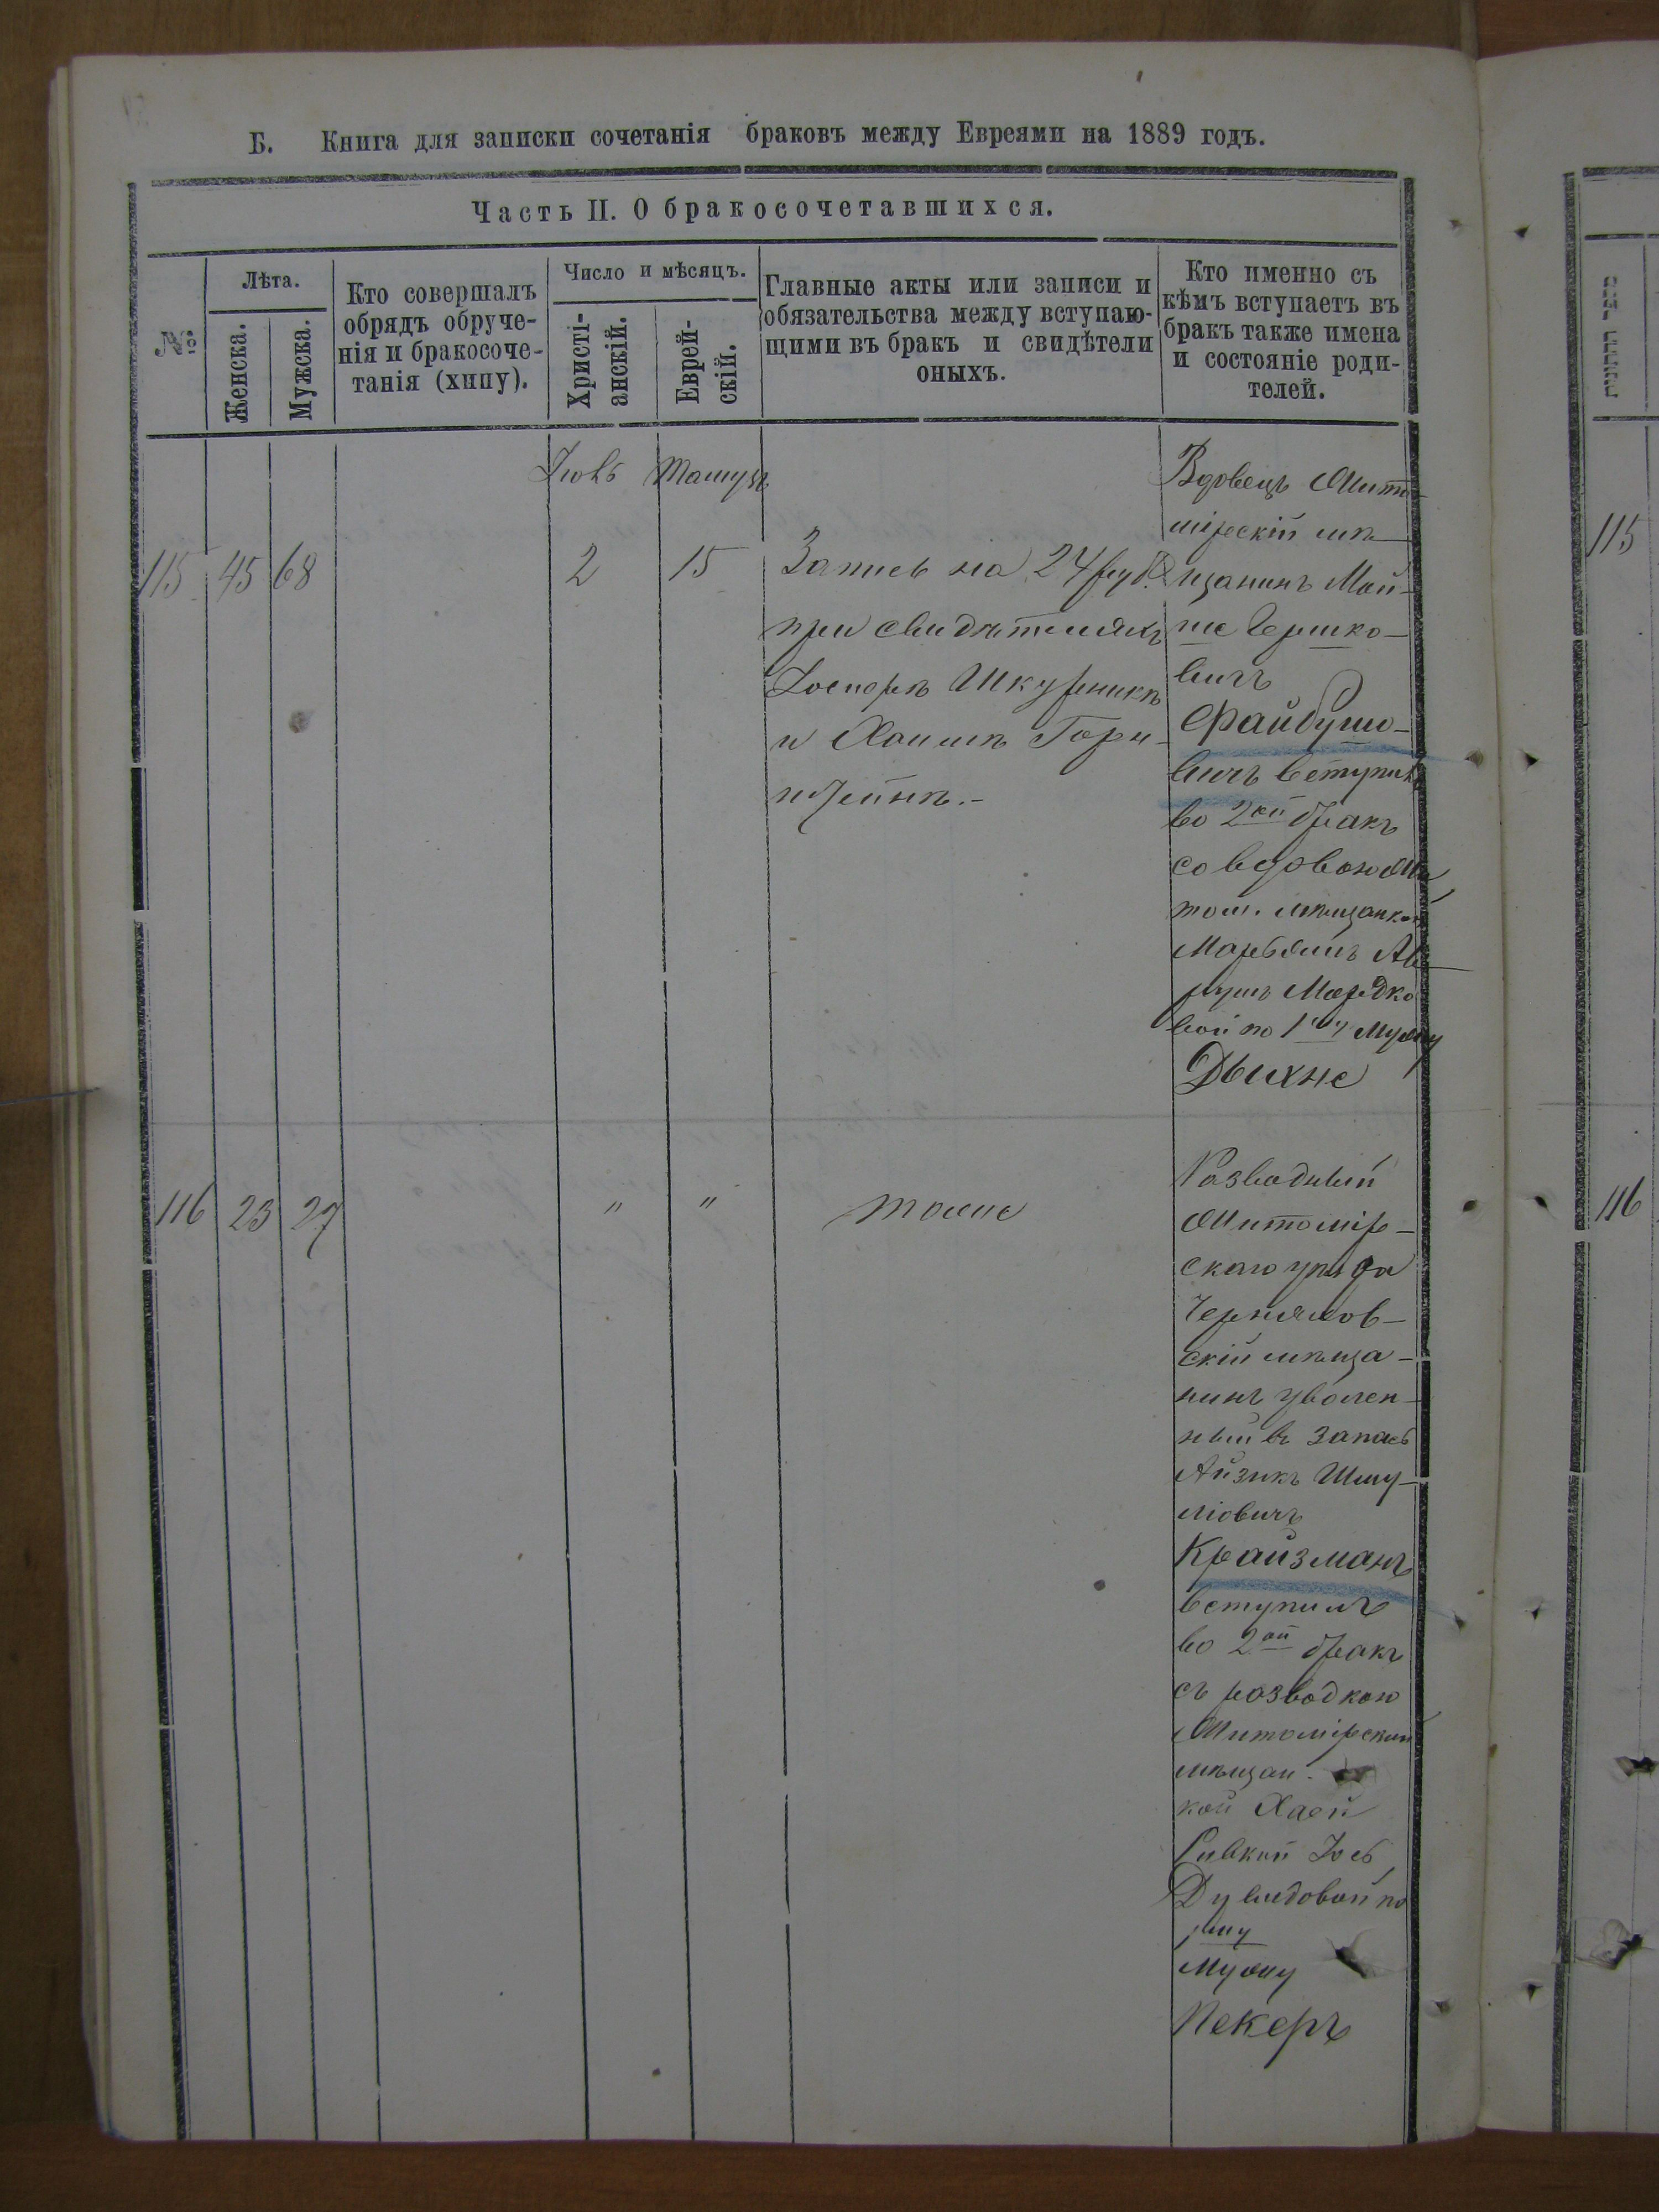 Б. Книга для записки сочетанія браковъ между Евреями на 1889 годъ.
Часть II. О бракосочетавшихся.
№
Лѣта.
Женска.
Мужска.
Кто совершалъ
обрядъ обруче-
нія и бракосоче-
танія (хипу).
Число и мѣсяцъ.
Христі-
анскій.
Еврей-
скій.
Главные акты или записи и
обязательства между вступаю-
щими въ бракъ и свидѣтели
оныхъ.
Кто именно съ
кѣмъ вступаетъ въ
бракъ также имена
и состояніе роди-
телей.
115
45
68
2
15
Запись на 24 руб.
при свидѣтеляхъ
Шкурникъ
и Хаимъ Горн-
штейнъ.-
Вдовецъ Жито-
мірскій мѣ-
щанинъ Мой-
ше Гершко-
вичъ
Файбушо-
вичъ вступилъ
во 2ой бракъ
со вдовою Жи
том. мѣщанкой
Марьямъ
Мордко
вой по 1му мужу
Дыхне
116
23
27
"
"
тоже
Разводный
Житомір-
скаго уѣзда
Черняхов-
скій мѣща-
нинъ уволен-
ный въ запасъ
Айзикъ Шму-
ліовичъ
Крайзманъ
вступилъ
во 2ой бракъ
съ разводкою
Житомірской
мѣщан.
кой Хаей
Ривкой Іос
Дувидовой по
1му
мужу
Пекеръ
ספר החתונות
115
116